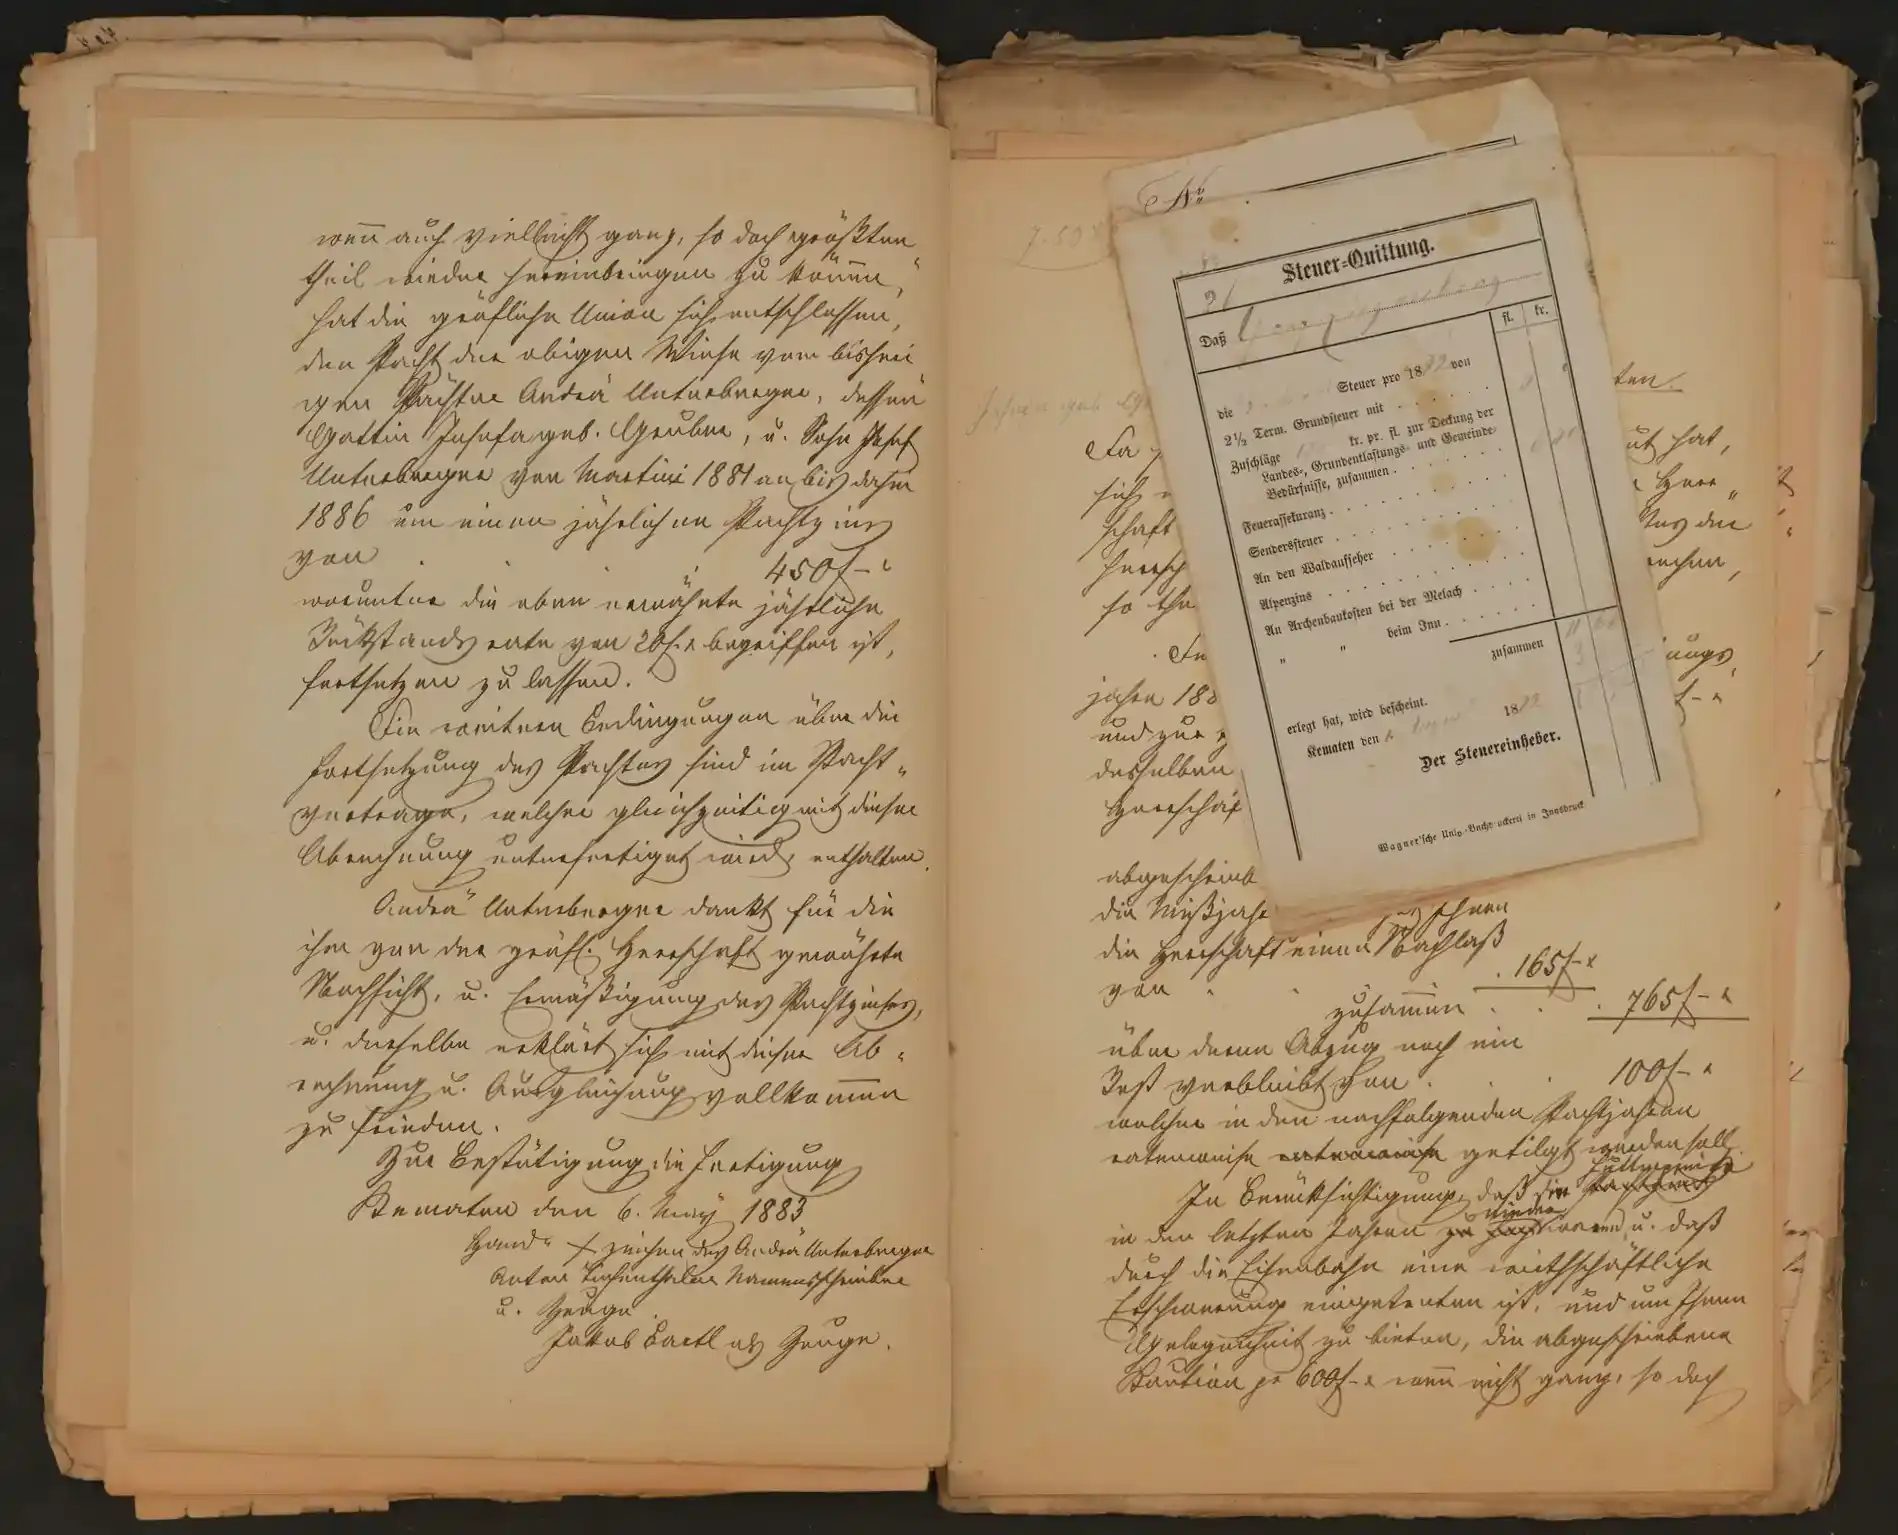 wenn auch vielleicht ganz, so doch größten
theil wieder hereinbringen zu können,
hat die gräfliche Union sich entschlossen,
den Pacht der obigen Wiese vom bisheri
gen Pächter Andrä Unterberger, dessen
Gattin Josefa geb. Gruber, u. Sohn Josef
Unterberger von Martini 1881 an bis dahin
1886 um einen jährlichen Pachtzins
von . . . 450f–"
worunter die oben erwähnte jährliche
Rückstandsrate von 20f." begriffen ist,
fortsetzen zu lassen.
Die weitern Bedingungen über die
Fortsetzung des Pachtes sind im Pacht„
vertrage, welcher gleichzeitig mit dieser
Abrechnung unterfertiget wird, enthalten.
Andrä Unterberger dankt für die
ihm von der gräfl. Herrschaft gewährte
Nachsicht, u. Ermäßigung des Pachtzinses,
u. derselbe erklärt sich mit dieser Ab„
rechnung u. Ausgleichung vollkommen
zu frieden.
Zur Bestätigung die Fertigung
Kematen den 6. May 1883
Hand„ + zeichen des Andrä Unterberger
Anton Lichenthaler Namensschreiber
u. Zeuge.
Jakob Bartl als Zeuge.
No
Steuer=Quittung.
Daß
fl. kr.
die Steuer pro 1882 von
2½ Term. Grundsteuer mit
Zuschläge kr. pr. fl. zur Deckung der
Landes-, Grundentlastungs- und Gemeinde-
Bedürfnisse, zusammen
Feuerassekuranz
Senderssteuer
An den Waldaufseher
Alpenzins
An Archenbaukosten bei der Melach
" " beim Inn
zusammen
erlegt hat, wird bescheint.
Kematen den 1882
Der Steuereinheber.
Wagner'sche Univ.-Buchdruckerei in Innsbruck
ten.
Da
ut hat,
sich
Herr„
schaft
des der
Hersch
so the
In
ungs„
jahre 188
f–"
und zur
desselben
Herrschaf
abgeschrieb
die Mißjahr
die Herrschaft einen Nachlaß
von . . 165f–x
zusammen . . . 765f–x
über deren Abzug noch ein
Rest verbleibt von . . 100f–"
welcher in den nachfolgenden Pachtjahren
ratenweise ratenweise getilgt werden soll.
In Berücksichtigung, daß sie
in den letzten Jahren zu u. daß
durch die Eisenbahn eine wirthschäftliche
Erschwerung eingetreten ist, und um Ihnen
Gelegenheit zu bieten, die abgeschriebene
Kaution pr 600f–x wenn nicht ganz, so doch